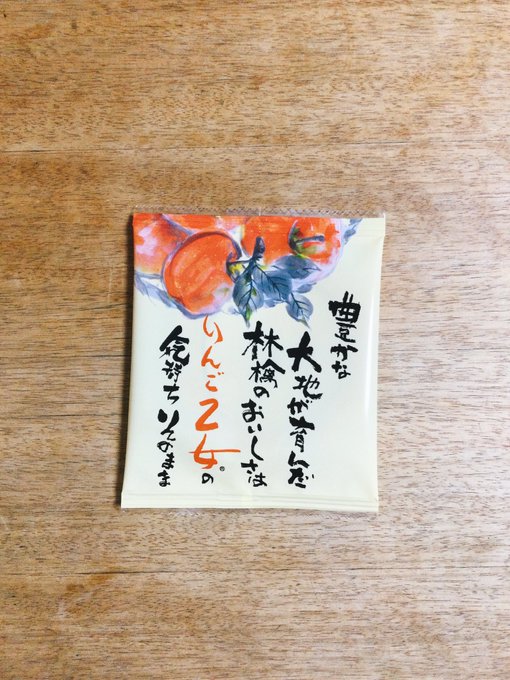 豊かな
大地が育んだ
林檎のおいしさは
りんご乙女。の
気持ちそのまま